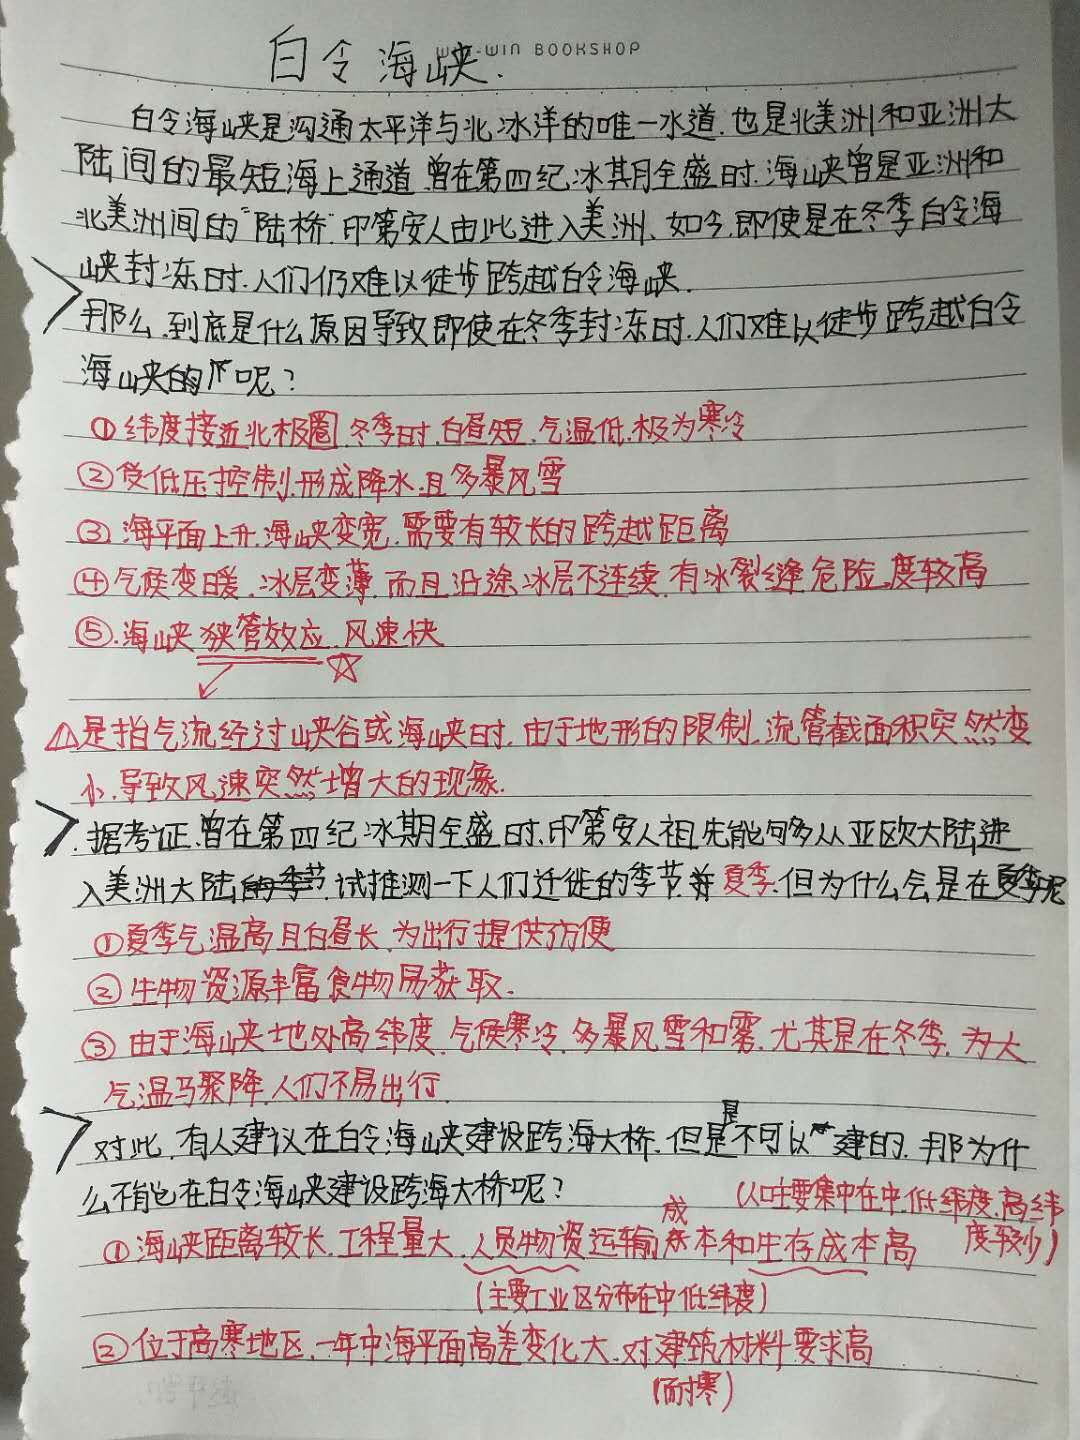 白令海峡.
WIN BOOKSHOP
白令海峡是沟通太平洋与北冰洋的唯一水道.也是北美洲和亚洲大
陆间的最短海上通道.曾在第四纪冰期全盛时.海峡曾是亚洲和
北美洲间的"陆桥".印第安人由此进入美洲、如今.即使是在冬季白令海
峡封冻时.人们仍难以徒步跨越白令海峡.
那么.到底是什么原因导致即使在冬季封冻时.人们难以徒步跨越白令
海峡的呢?
①纬度接近北极圈.冬季时.白昼短.气温低.极为寒冷
②受低压控制.形成降水.且多暴风雪
③.海平面上升.海峡变宽.需要有较长的跨越距离
④气候变暖.冰层变薄.而且沿途冰层不连续.有冰裂缝.危险度较高
⑤.海峡狭管效应.风速快
是指气流经过峡谷或海峡时.由于地形的限制.流管截面积突然变
小.导致风速突然增大的现象.
据考证.曾在第四纪冰期全盛时.印第安人祖先能够多从亚欧大陆进
入美洲大陆的季节.试推测一下人们迁徙的季节并夏季.但为什么会是在夏季呢
①夏季气温高且白昼长.为出行提供方便
②生物资源丰富食物易获取.
③由于海峡地处高纬度.气候寒冷.多暴风雪和雾.尤其是在冬季.为大
气温马聚降.人们不易出行.
是
对此.有人建议在白令海峡建设跨海大桥.但是不可以建的.那为什
么不能在白令海峡建设跨海大桥呢?
(人口主要集中在中.低纬度.高纬
度较少)
成
①海峡距离较长.工程量大.人员物资运输本和生存成本高
(主要工业区分布在中低纬度)
②位于高寒地区.一年中海平面高差变化大.对建筑材料要求高
(耐寒)